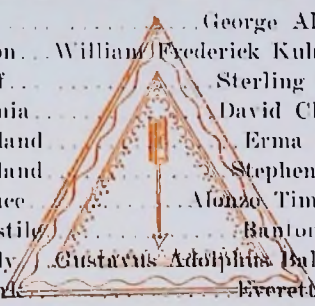 George Al
on... William Frederick Kuh
f... Sterling
nia... David Cl
land... Erma
land... Stephen
ace... Alonzo Tim
stile... Banton
ly... Gustavus Adolphus Bal
Everett